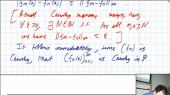 |f_n(a) - f_m(a)| ≤ ||f_m - f_n||∞
[Recall: Cauchy sequence means,
∀ε>0, ∃N∈ℕ s.t. for all m,n≥N
we have ||f_m - f_n||∞ ≤ ε]
It follows immediately, since (f_n) is
Cauchy, that (f_n(a))_{n=1}^∞ is Cauchy in